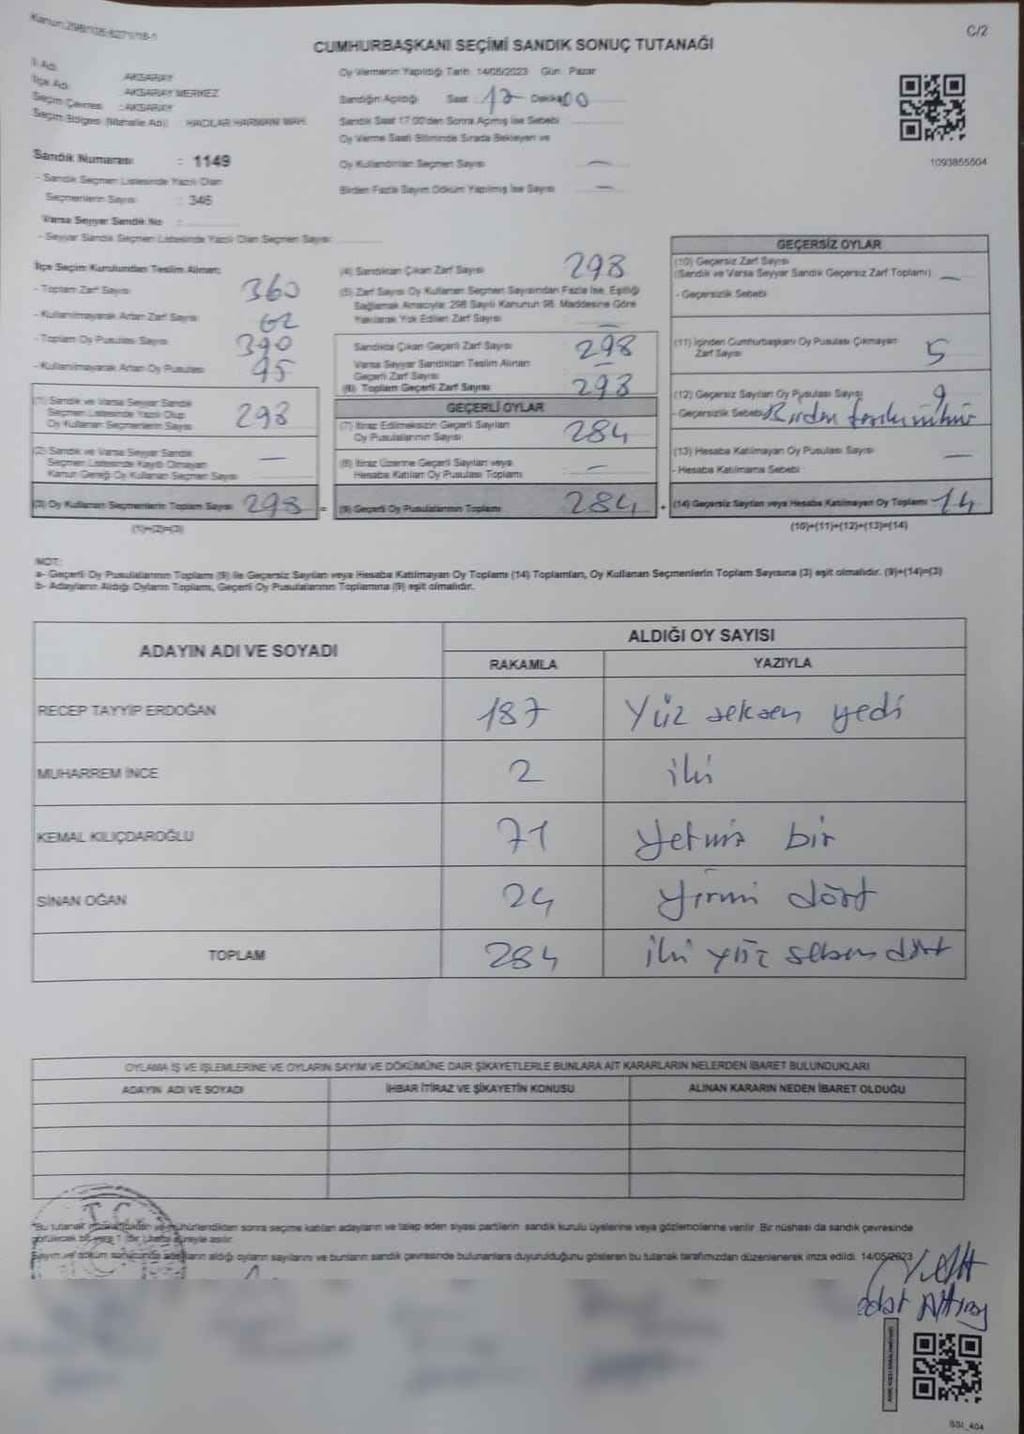 C/2
CUMHURBAŞKANI SEÇİMİ SANDIK SONUÇ TUTANAĞI
İl Adı AKSARAY
İlçe Adı AKSARAY MERKEZ
Seçim Çevresi : AKSARAY
Seçim Bölgesi (Mahalle Adı) : HACILAR HARMANI MAH.
Sandık Numarası : 1149
- Sandık Seçmen Listesinde Yazılı Olan
Seçmenlerin Sayısı : 346
Varsa Seyyar Sandık No :
- Seyyar Sandık Seçmen Listesinde Yazılı Olan Seçmen Sayısı
Oy Vermenin Yapıldığı Tarih: 14/05/2023 Gün: Pazar
Sandığın Açıldığı Saat : 17 Dakika 00
Sandık Saat 17:00'den Sonra Açılmış İse Sebebi
Oy Verme Saati Bitiminde Sırada Bekleyen ve
Oy Kullandırılan Seçmen Sayısı —
Birden Fazla Sayım Döküm Yapılmış İse Sayısı —
1093855504
İlçe Seçim Kurulundan Teslim Alınan:
- Toplam Zarf Sayısı 360
- Kullanılmayarak Artan Zarf Sayısı 62
- Toplam Oy Pusulası Sayısı 390
- Kullanılmayarak Artan Oy Pusulası 95
(1) Sandık ve Varsa Seyyar Sandık
Seçmen Listesinde Yazılı Olup
Oy Kullanan Seçmenlerin Sayısı 298
(2) Sandık ve Varsa Seyyar Sandık
Seçmen Listesinde Kayıtlı Olmayan
Kanun Gereği Oy Kullanan Seçmen Sayısı —
(3) Oy Kullanan Seçmenlerin Toplam Sayısı 298 =
(1)+(2)=(3)
(4) Sandıktan Çıkan Zarf Sayısı 298
(5) Zarf Sayısı Oy Kullanan Seçmen Sayısından Fazla İse, Eşitliği
Sağlamak Amacıyla; 298 Sayılı Kanunun 98. Maddesine Göre
Yakılarak Yok Edilen Zarf Sayısı —
Sandıkta Çıkan Geçerli Zarf Sayısı 298
Varsa Seyyar Sandıktan Teslim Alınan
Geçerli Zarf Sayısı
(6) Toplam Geçerli Zarf Sayısı 298
GEÇERLİ OYLAR
(7) İtiraz Edilmeksizin Geçerli Sayılan
Oy Pusulalarının Sayısı 284
(8) İtiraz Üzerine Geçerli Sayılan veya
Hesaba Katılan Oy Pusulası Toplamı —
(9) Geçerli Oy Pusulalarının Toplamı 284 +
GEÇERSİZ OYLAR
(10) Geçersiz Zarf Sayısı
(Sandık ve Varsa Seyyar Sandık Geçersiz Zarf Toplamı) —
- Geçersizlik Sebebi
(11) İçinden Cumhurbaşkanı Oy Pusulası Çıkmayan
Zarf Sayısı 5
(12) Geçersiz Sayılan Oy Pusulası Sayısı 9
- Geçersizlik Sebebi Birden fazla mühür
(13) Hesaba Katılmayan Oy Pusulası Sayısı —
- Hesaba Katılmama Sebebi
(14) Geçersiz Sayılan veya Hesaba Katılmayan Oy Toplamı 14
(10)+(11)+(12)+(13)=(14)
NOT:
a- Geçerli Oy Pusulalarının Toplamı (9) ile Geçersiz Sayılan veya Hesaba Katılmayan Oy Toplamı (14) Toplamları, Oy Kullanan Seçmenlerin Toplam Sayısına (3) eşit olmalıdır. (9)+(14)=(3)
b- Adayların Aldığı Oyların Toplamı, Geçerli Oy Pusulalarının Toplamına (9) eşit olmalıdır.
ADAYIN ADI VE SOYADI
ALDIĞI OY SAYISI
RAKAMLA YAZIYLA
RECEP TAYYİP ERDOĞAN 187 Yüz seksen yedi
MUHARREM İNCE 2 iki
KEMAL KILIÇDAROĞLU 71 Yetmiş bir
SİNAN OĞAN 24 yirmi dört
TOPLAM 284 iki yüz seksen dört
OYLAMA İŞ VE İŞLEMLERİNE VE OYLARIN SAYIM VE DÖKÜMÜNE DAİR ŞİKAYETLERLE BUNLARA AİT KARARLARIN NELERDEN İBARET BULUNDUKLARI
ADAYIN ADI VE SOYADI İHBAR İTİRAZ VE ŞİKAYETİN KONUSU ALINAN KARARIN NEDEN İBARET OLDUĞU
T.C.
*Bu tutanak mühürlendikten sonra seçime katılan adayların ve talep eden siyasi partilerin sandık kurulu üyelerine veya gözlemcilerine verilir. Bir nüshası da sandık çevresinde
süreyle asılır.
Sayım ve döküm sonucunda adayların aldığı oyların sayılarını ve bunların sandık çevresinde bulunanlara duyurulduğunu gösteren bu tutanak tarafımızdan düzenlenerek imza edildi. 14/05/2023
SSI_404